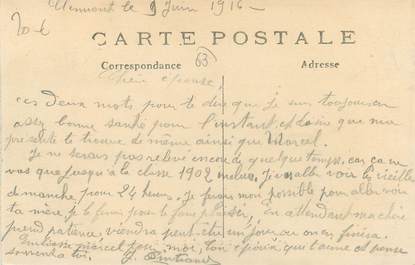 le 9 Juin 1916 -
20-6
CARTE POSTALE
Correspondance
63
Adresse
Chère épouse,
ces deux mots pour te dire que je suis toujours en
assez bonne santé pour l'instant et désire que ma
présente te trouve de même ainsi que Marcel.
Je ne serais pas relevé encore de quelque temps, car ça ne
vas que jusqu'à la classe 1902 inclus. Je vais aller voir la vieille
dimanche pour 24 heures. Je ferais mon possible pour aller voir
ta mère, je le ferais pour te faire plaisir, en attendant ma chère
prend patience, viendra peut-être un jour ou on en finira.
Embrasse Marcel pour moi, ton époux qui t'aime et pense
souvent à toi.